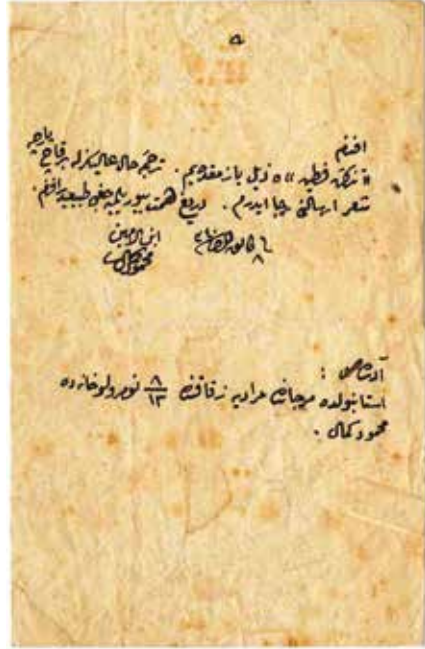 افندم
«تذكرهٔ فطين»ه ذيل يازمقدهيم . ترجمهٔ حال عاليكزله برقاچ پارچه
شعر ارسالنى رجا ايدرم . دريغ همت بيورلميه جغى طبيعيدر افندم .
ابن الامين
محمود كمال
آدرسم :
استانبولده مرجانده مراديه زقاقنده ٨/١٣ نومرولو خانه ده
محمود كمال .